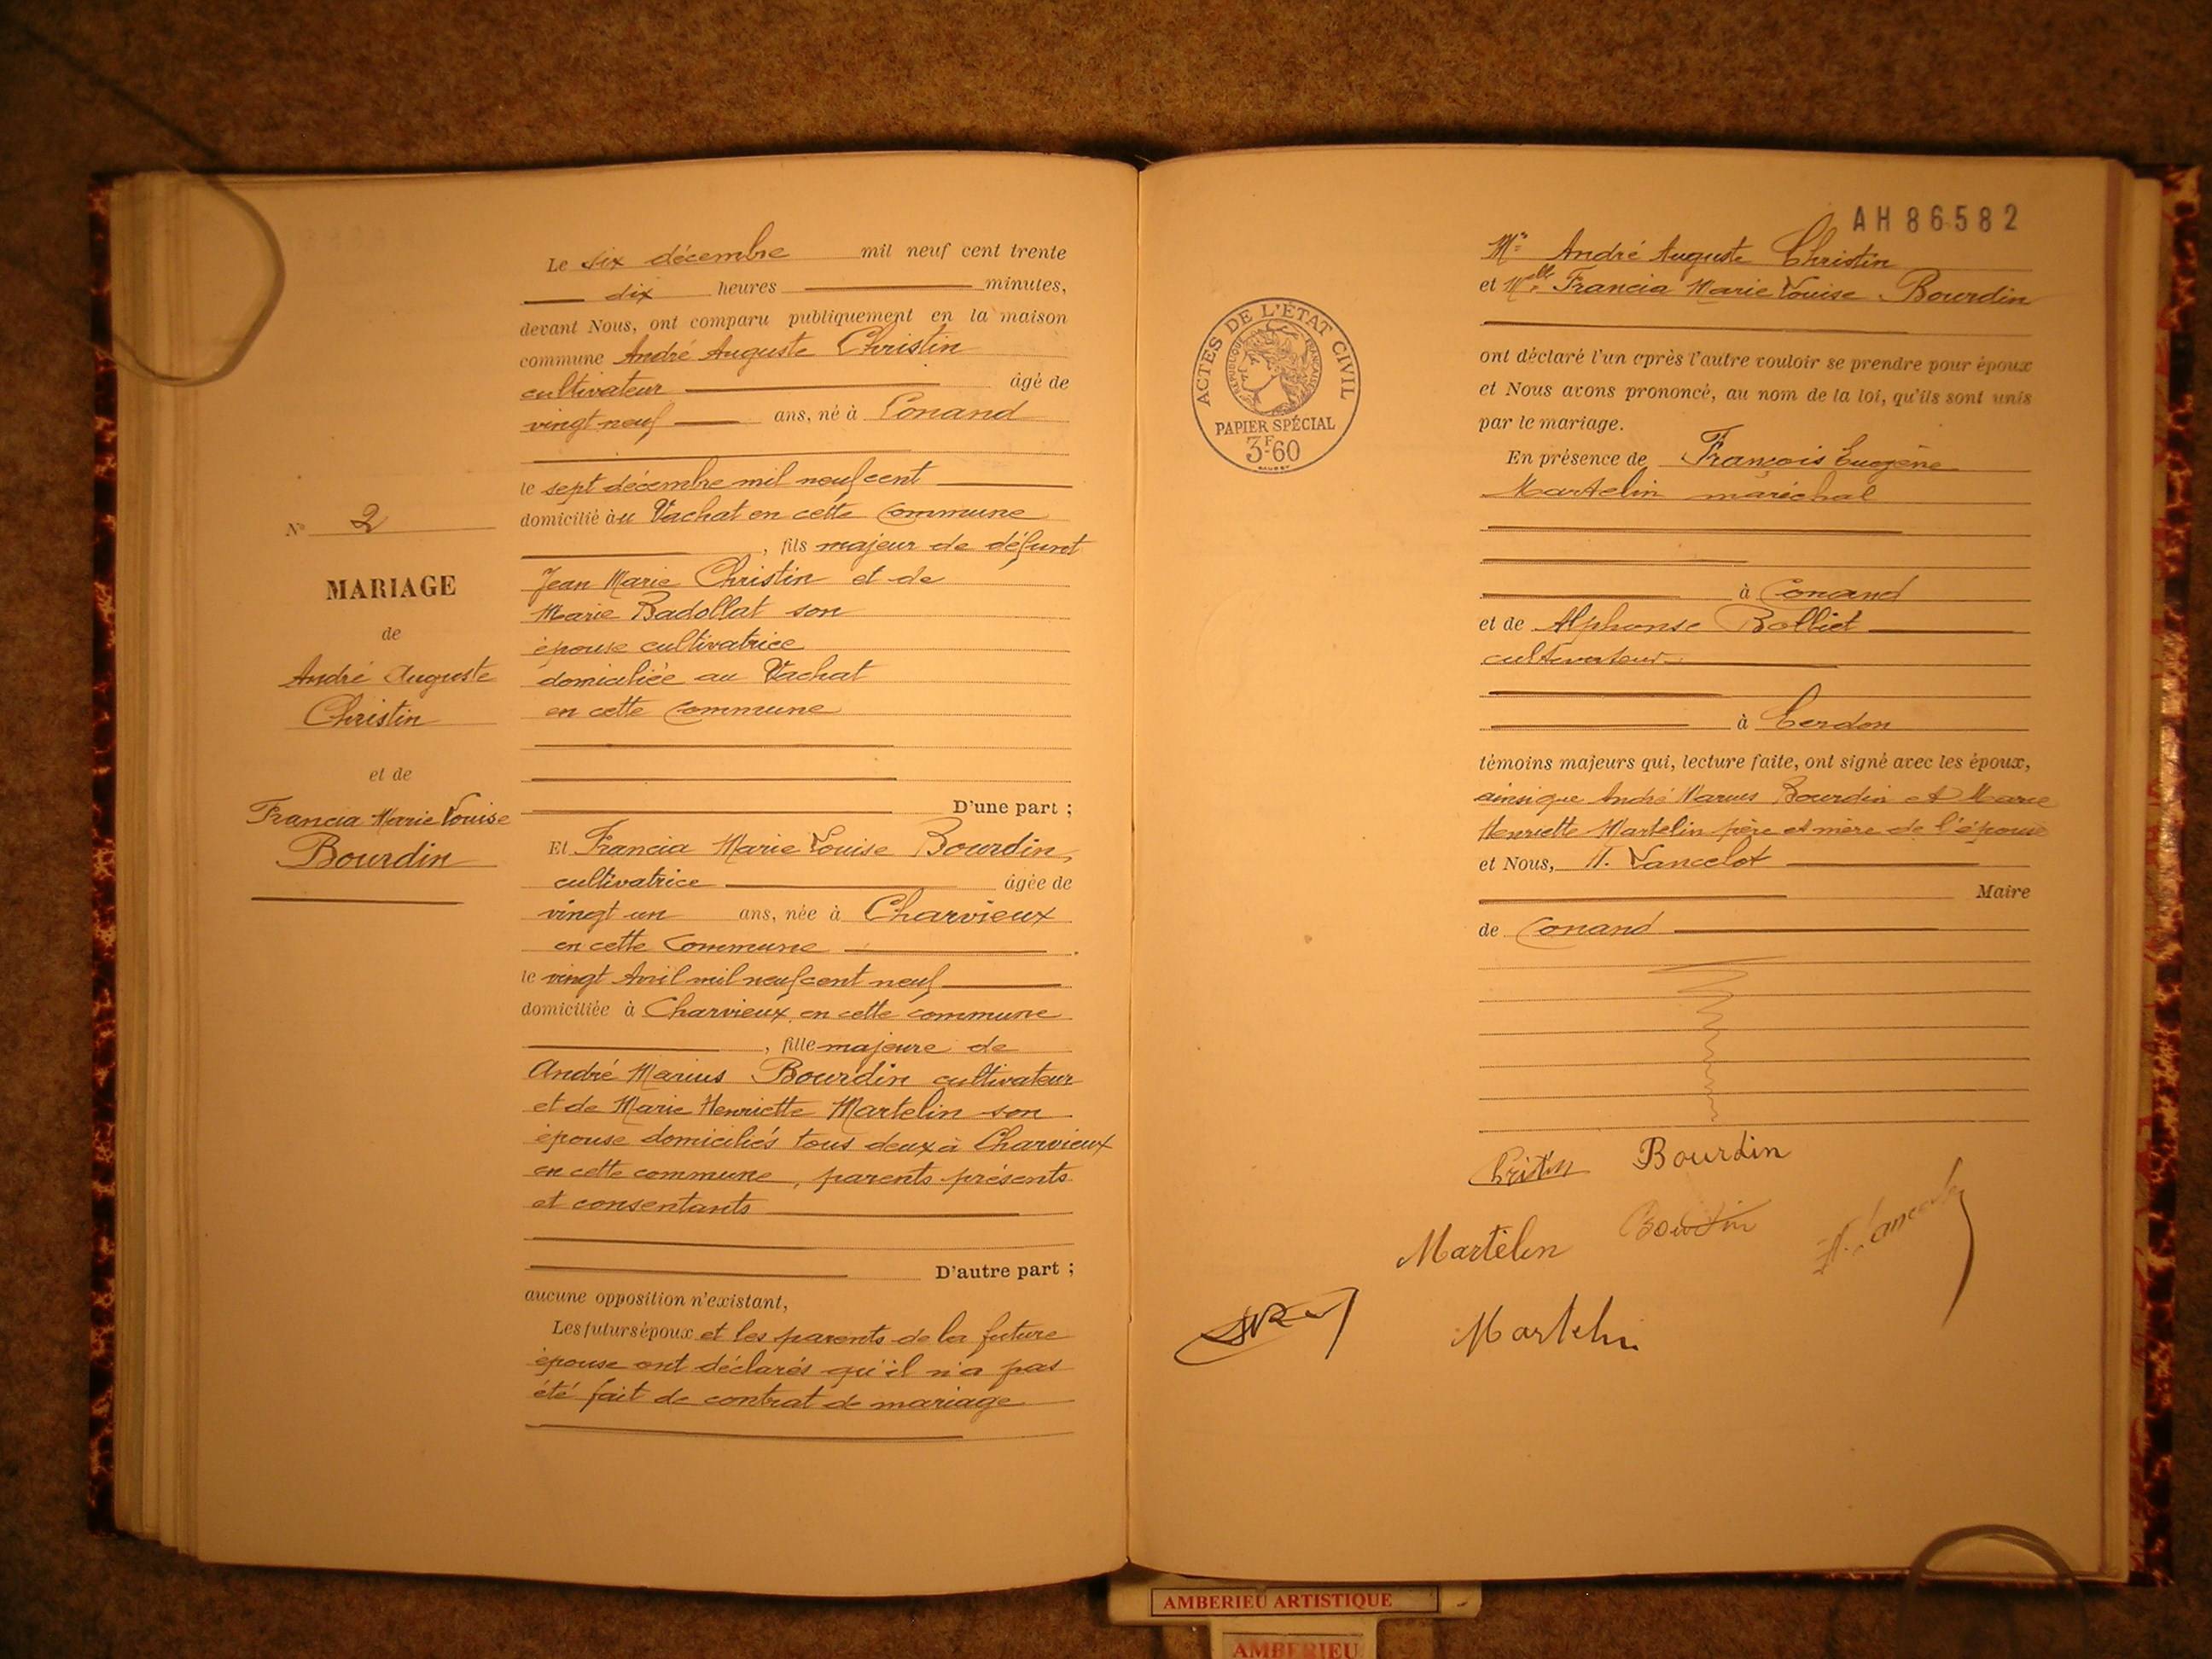 Nº 2
MARIAGE
de
André Auguste
Christin
et de
Francia Marie Louise
Bourdin
Le six décembre mil neuf cent trente
dix heures minutes,
devant Nous, ont comparu publiquement en la maison
commune André Auguste Christin
cultivateur âgé de
vingt neuf ans, né à Conand
le sept décembre mil neuf cent
domicilié au Vachat en cette commune
, fils majeur de défunt
Jean Marie Christin et de
Marie Badollat son
épouse cultivatrice
domiciliée au Vachat
en cette commune
D'une part ;
Et Francia Marie Louise Bourdin,
cultivatrice âgée de
vingt un ans, née à Charvieux
en cette Commune
le vingt Avril mil neuf cent neuf
domiciliée à Charvieux en cette commune
, fille majeure de
André Marius Bourdin cultivateur
et de Marie Henriette Martelin son
épouse domiciliés tous deux à Charvieux
en cette commune, parents présents
et consentants
D'autre part ;
aucune opposition n'existant,
Les futurs époux et les parents de la future
épouse ont déclarés qu'il n'a pas
été fait de contrat de mariage
AH86582
ACTES DE L'ÉTAT CIVIL
RÉPUBLIQUE FRANÇAISE
PAPIER SPÉCIAL
3F60
Mr André Auguste Christin
et Melle Francia Marie Louise Bourdin
ont déclaré l'un après l'autre vouloir se prendre pour époux
et Nous avons prononcé, au nom de la loi, qu'ils sont unis
par le mariage.
En présence de François Eugène
Martelin maréchal
à Conand
et de Alphonse Bolliet
cultivateur
à Cerdon
témoins majeurs qui, lecture faite, ont signé avec les époux,
ainsi que André Marius Bourdin et Marie
Henriette Martelin père et mère de l'épouse
et Nous, H. Lancelot
Maire
de Conand
Christin Bourdin
Martelin Bourdin H. Lancelot
Martelin
AMBERIEU ARTISTIQUE
AMBERIEU